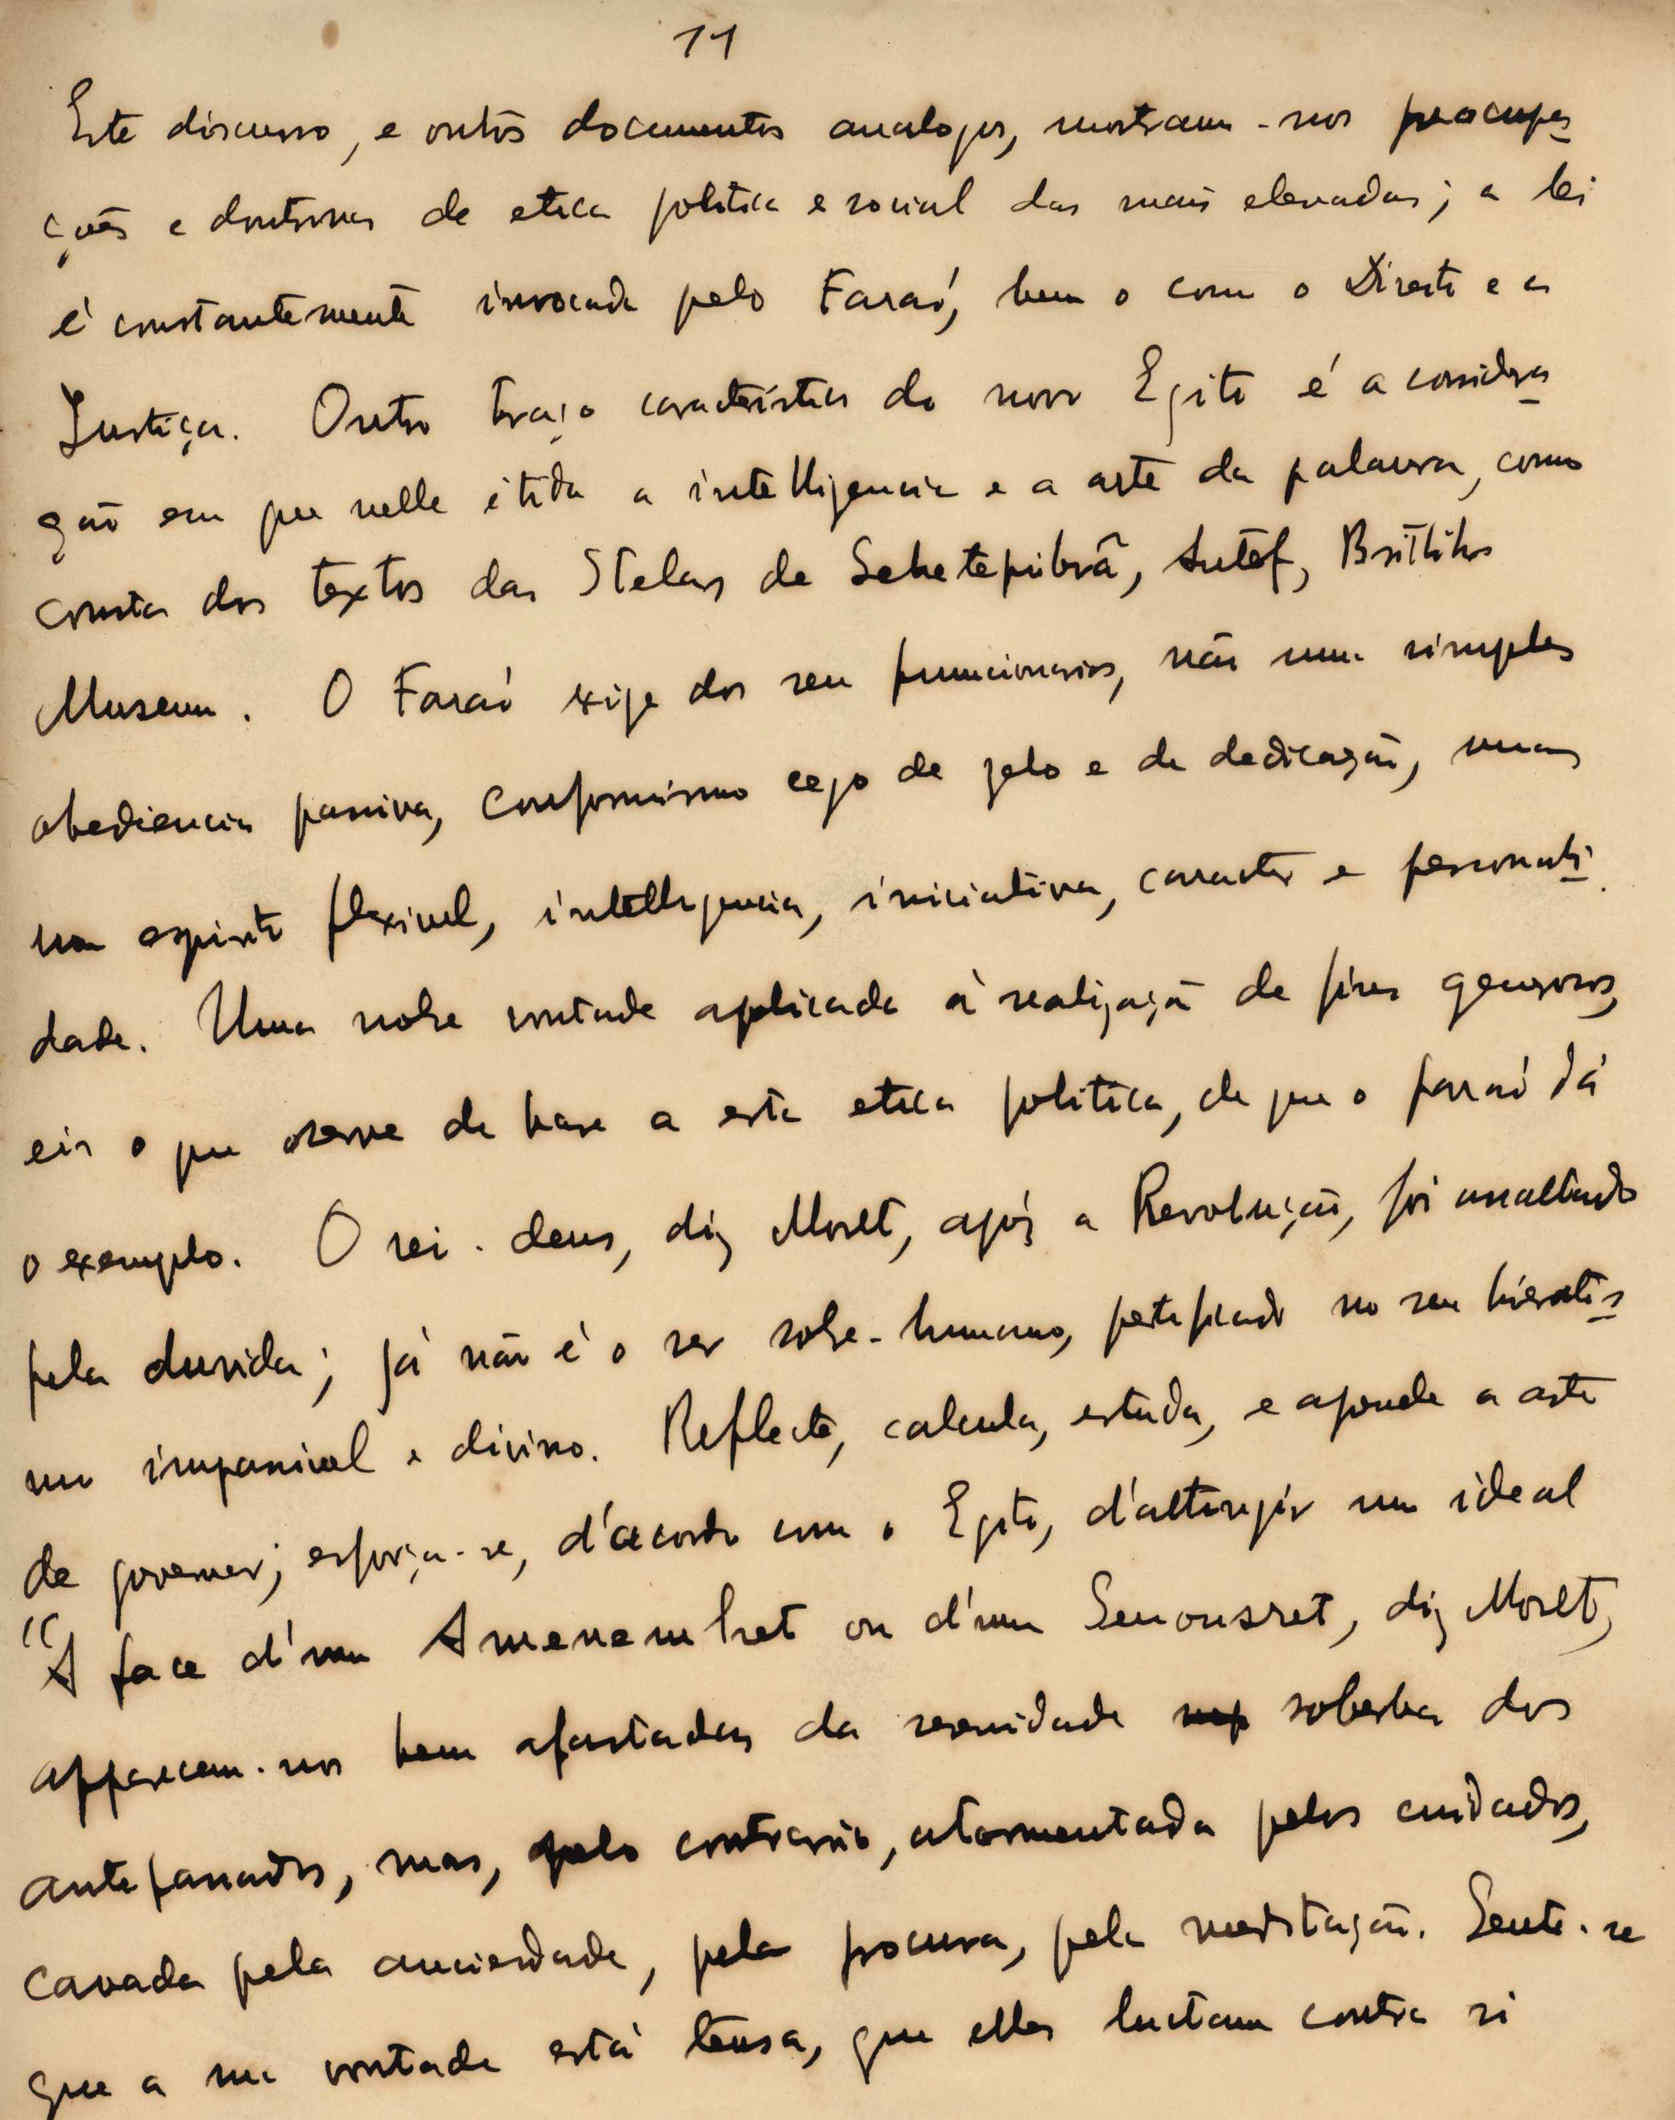 11
Este discurso, e outros documentos analogos, mostram-nos preocupa
ções e doutrinas de etica politica e social das mais elevadas; a lei
é constantemente invocada pelo Faraó, bem o como o Direito e a
Justiça. Outro traço caracteristico do novo Egito é a considera
ção em que nelle é tida a intelligencia e a arte da palavra, como
consta dos textos das Stelas de Sehetepibrâ, Antef, British
Museum. O Faraó exige dos seu funcionarios, não uma simples
obediencia passiva, conformismo cego de zelo e de dedicação, mas
um espirito flexivel, intelligencia, iniciativa, caracter e personali
dade. Uma nobre vontade aplicada á realização de fins generosos,
eis o que serve de base a esta etica politica, de que o faraó dá
o exemplo. O rei-deus, diz Moret, após a Revolução, foi assaltado
pela duvida; já não é o ser sobre-humano, petrificado no seu hieratis
mo impassivel e divino. Reflecte, calcula, estuda, e aprende a arte
de governar; esforça-se, d'acordo com o Egito, d'attingir um ideal
"A face d'um Amenemhet ou d'um Senousret, diz Moret,
apparecem-nos bem afastadas da serenidade soberba dos
antepassados, mas, pelo contrario, atormentada pelos cuidados,
cavada pela anciedade, pela procura, pela meditação. Sente-se
que a sua vontade está tensa, que elles luctam contra si